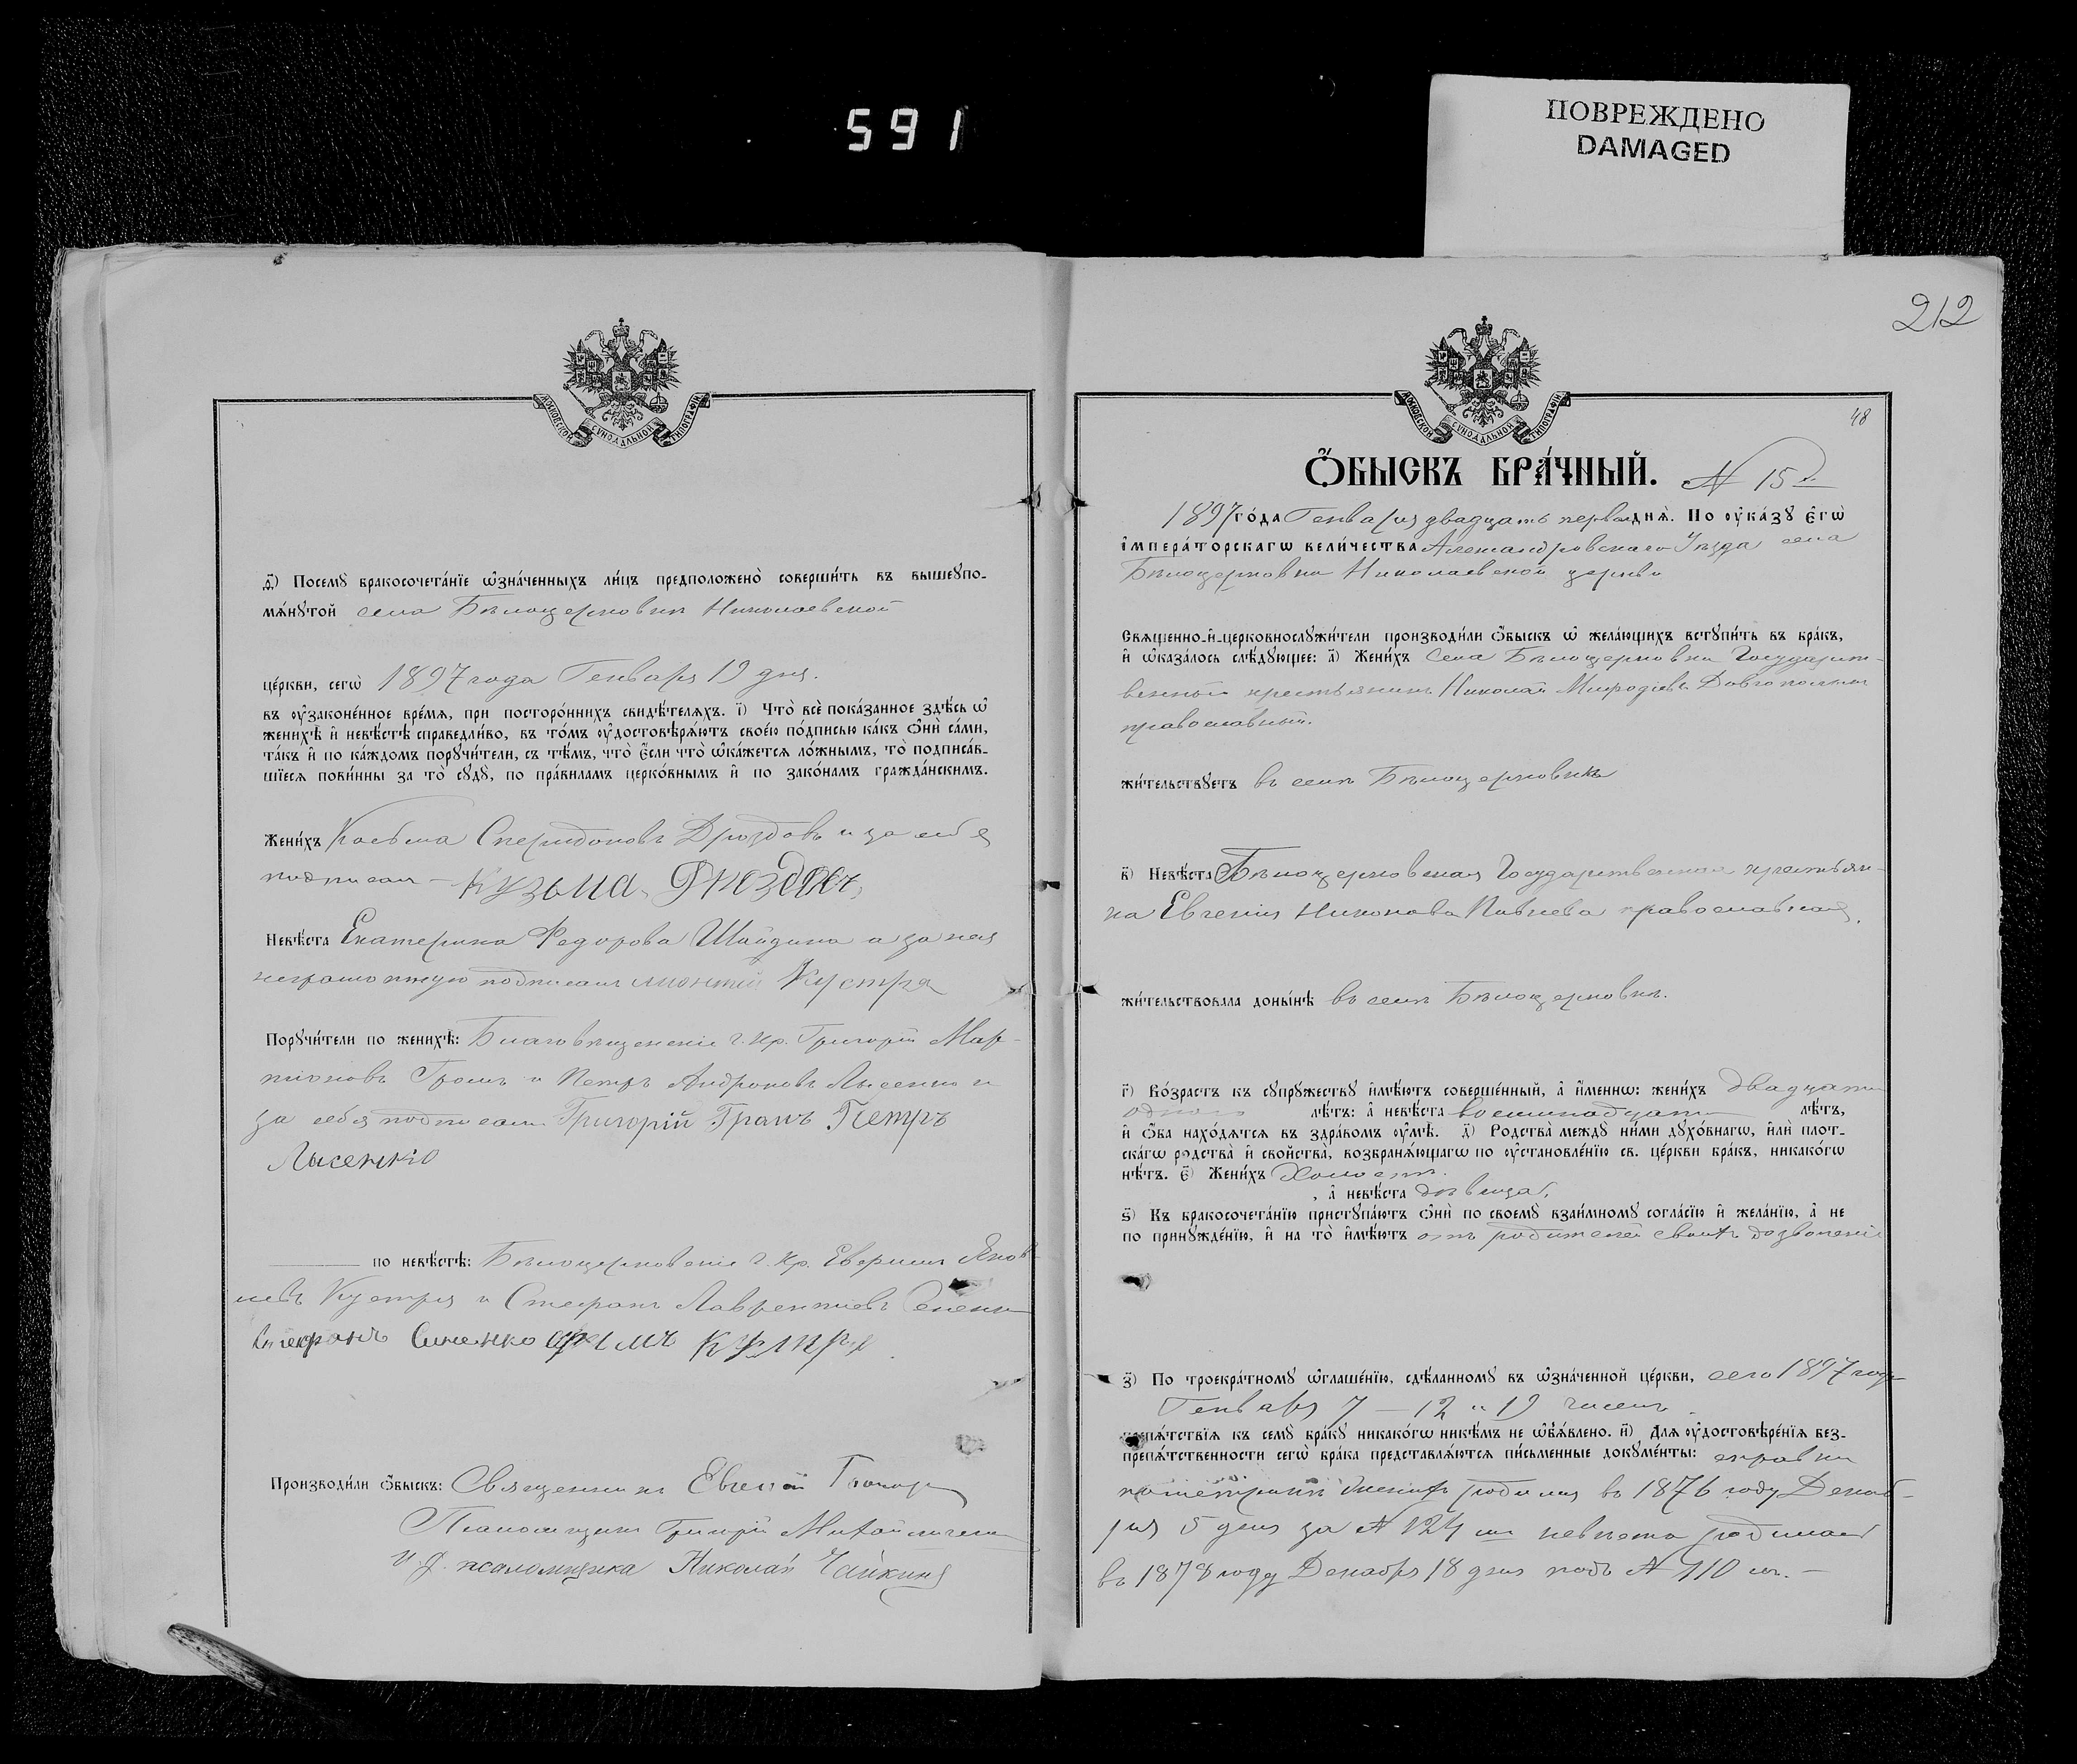 591
ПОВРЕЖДЕНО
DAMAGED
МОСКОВСКОЙ СѴНОДАЛЬНОЙ ТИПОГРАФІИ
ѳ҃) Посемꙋ бракосочета́нїе ѡ҆зна́ченныхъ ли́цъ предположено̀ соверши́ть въ вышеꙋпо-
мѧ́нꙋтой села Бѣлоцерковки Николаевской
це́ркви, сегѡ̀ 1897 года Генваря 19 дня.
въ ᲂу҆законе́нное вре́мѧ, при посторо́ннихъ свидѣ́телѧхъ. і҃) Что̀ всѐ пока́занное здѣ́сь ѡ҆
женихѣ̀ и҆ невѣ́стѣ справедли́во, въ то́мъ ᲂу҆достовѣрѧ́ютъ свое́ю по́дписью ка́къ ѻ҆нѝ са́ми,
та́къ и҆ по ка́ждомъ порꙋчи́тели, съ тѣ́мъ, что̀ є҆́сли что̀ ѡ҆ка́жется ло́жнымъ, то̀ подписа́в-
шїеся пови́нны за то̀ сꙋдꙋ̀, по пра́виламъ церко́внымъ и҆ по зако́намъ гражда́нскимъ.
Жени́хъ Косьма Спиридоновъ Дроздовъ и за себя
подписал – Кузьма Дроздов
Невѣ́ста Екатерина Федорова Шайдина а за нея
неграмотную подписалъ Кустря
Порꙋчи́тели по женихѣ̀: Благовѣщенскіе г. кр. Григорій Мар-
тіоновъ Громъ и Петръ Андроновъ Лысенко и
за себя подписали Григорій Громъ Петръ
Лысенко
по невѣ́стѣ: Бѣлоцерковскіе г. кр. Яков-
левъ Кустря и Стефанъ Лаврентіевъ
Стефанъ Синенко Кустря
Производи́ли ѻ҆́быскъ: Священникъ Евгеній
Псаломщикъ Григорій
и. д. псаломщика Николай Чайкинъ
212
МОСКОВСКОЙ СѴНОДАЛЬНОЙ ТИПОГРАФІИ
48
Ѻ҆́БЫСКЪ БРА́ЧНЫЙ. N 15й
1897 го́да Генваря двадцать перваго днѧ̀. По ᲂу҆ка́зꙋ є҆гѡ̀
і҆мпера́торскагѡ вели́чества Александровскаго Уѣзда села
Бѣлоцерковки Николаевской церкви
Свѧще́нно-и҆-церковнослꙋжи́тели производи́ли ѻ҆́быскъ ѡ҆ жела́ющихъ встꙋпи́ть въ бра́къ,
и҆ ѡ҆каза́лось слѣ́дꙋющее: а҃) Жени́хъ Села Бѣлоцерковки Государст-
венный крестьянинъ Николай Мефодіевъ
православный.
жи́тельствꙋетъ въ селѣ Бѣлоцерковкѣ
в҃) Невѣ́ста Бѣлоцерковская Государственная крестьян-
ка Евгенія Никонова православная.
жи́тельствовала доны́нѣ въ селѣ Бѣлоцерковкѣ.
г҃) Во́зрастъ къ сꙋпрꙋ́жествꙋ и҆мѣ́ютъ соверше́нный, а҆ и҆́меннѡ: жени́хъ двадцати
одного лѣ́тъ: а҆ невѣ́ста восемнадцати лѣ́тъ,
и҆ ѻ҆́ба нахо́дятся въ здра́вомъ ᲂу҆мѣ̀. д҃) Родства̀ междꙋ̀ ни́ми дꙋхо́внагѡ, и҆лѝ плот-
ска́гѡ родства̀ и҆ свойства̀, возбранѧ́ющагѡ по ᲂу҆становле́нїю св. це́ркви бра́къ, никако́гѡ
нѣ́тъ. є҃) Жени́хъ Холостъ.
, а҆ невѣ́ста дѣвица.
ѕ҃) Къ бракосочета́нїю пристꙋпа́ютъ ѻ҆нѝ по своемꙋ̀ взаи́мномꙋ согла́сїю и҆ жела́нїю, а҆ не
по принꙋжде́нїю, и҆ на то̀ и҆мѣ́ютъ отъ родителей своихъ дозволеніе
з҃) По троекра́тномꙋ ѡ҆глаше́нїю, сдѣ́ланномꙋ въ ѡ҆зна́ченной це́ркви, сего 1897 года
Генваря 7 – 12 и 19 чиселъ
препѧ́тствїя къ семꙋ̀ бра́кꙋ никако́гѡ никѣ́мъ не ѡ҆б̾ѧ́влено. и҃) Для ᲂу҆достовѣре́нїя без-
препѧ́тственности сегѡ̀ бра́ка представлѧ́ются пи́сьменные докꙋме́нты: справки
по метрикѣ женихъ родился въ 1876 году Декаб-
ря 5 дня за N 124 мъ невѣста родилась
въ 1878 году Декабря 18 дня подъ N 110 мъ. –